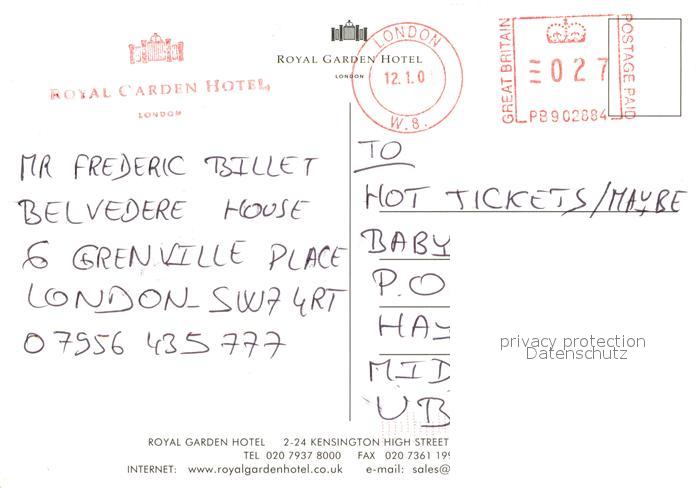 ROYAL GARDEN HOTEL
LONDON
ROYAL GARDEN HOTEL
LONDON
LONDON
12.1.0
W.8.
GREAT BRITAIN
027
PB902884
POSTAGE PAID
MR FREDERIC BILLET
BELVEDERE HOUSE
6 GRENVILLE PLACE
LONDON_SW7 4RT
07956 435 777
TO
HOT TICKETS/MAYBE
BABY
P.O
HAY
MID
UB
privacy protection
Datenschutz
ROYAL GARDEN HOTEL 2-24 KENSINGTON HIGH STREET
TEL 020 7937 8000 FAX 020 7361 199
INTERNET: www.royalgardenhotel.co.uk e-mail: sales@